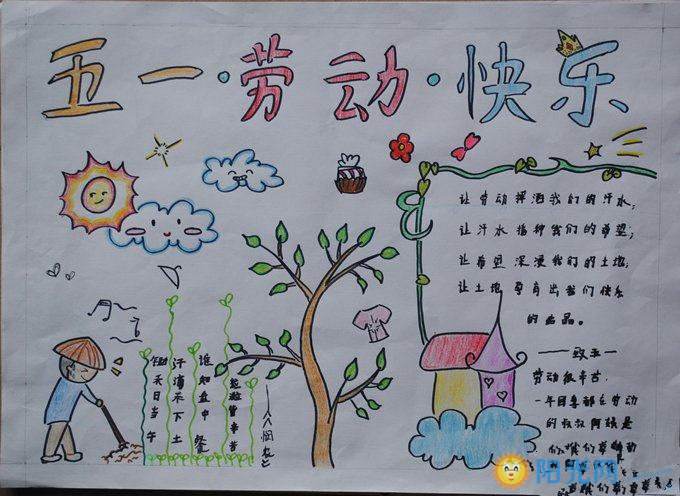 五一·劳动·快乐
让劳动挥洒我们的汗水;
让汗水播种我们的希望;
让希望深浸我们的土地;
让土地孕育出我们快乐
的
品。
——致五一
劳动很辛苦.
一年四季都在劳动
的叔叔阿姨是
锄禾日当午
汗滴禾下土
谁知盘中餐
粒粒皆辛苦
——《悯农》
阳光网